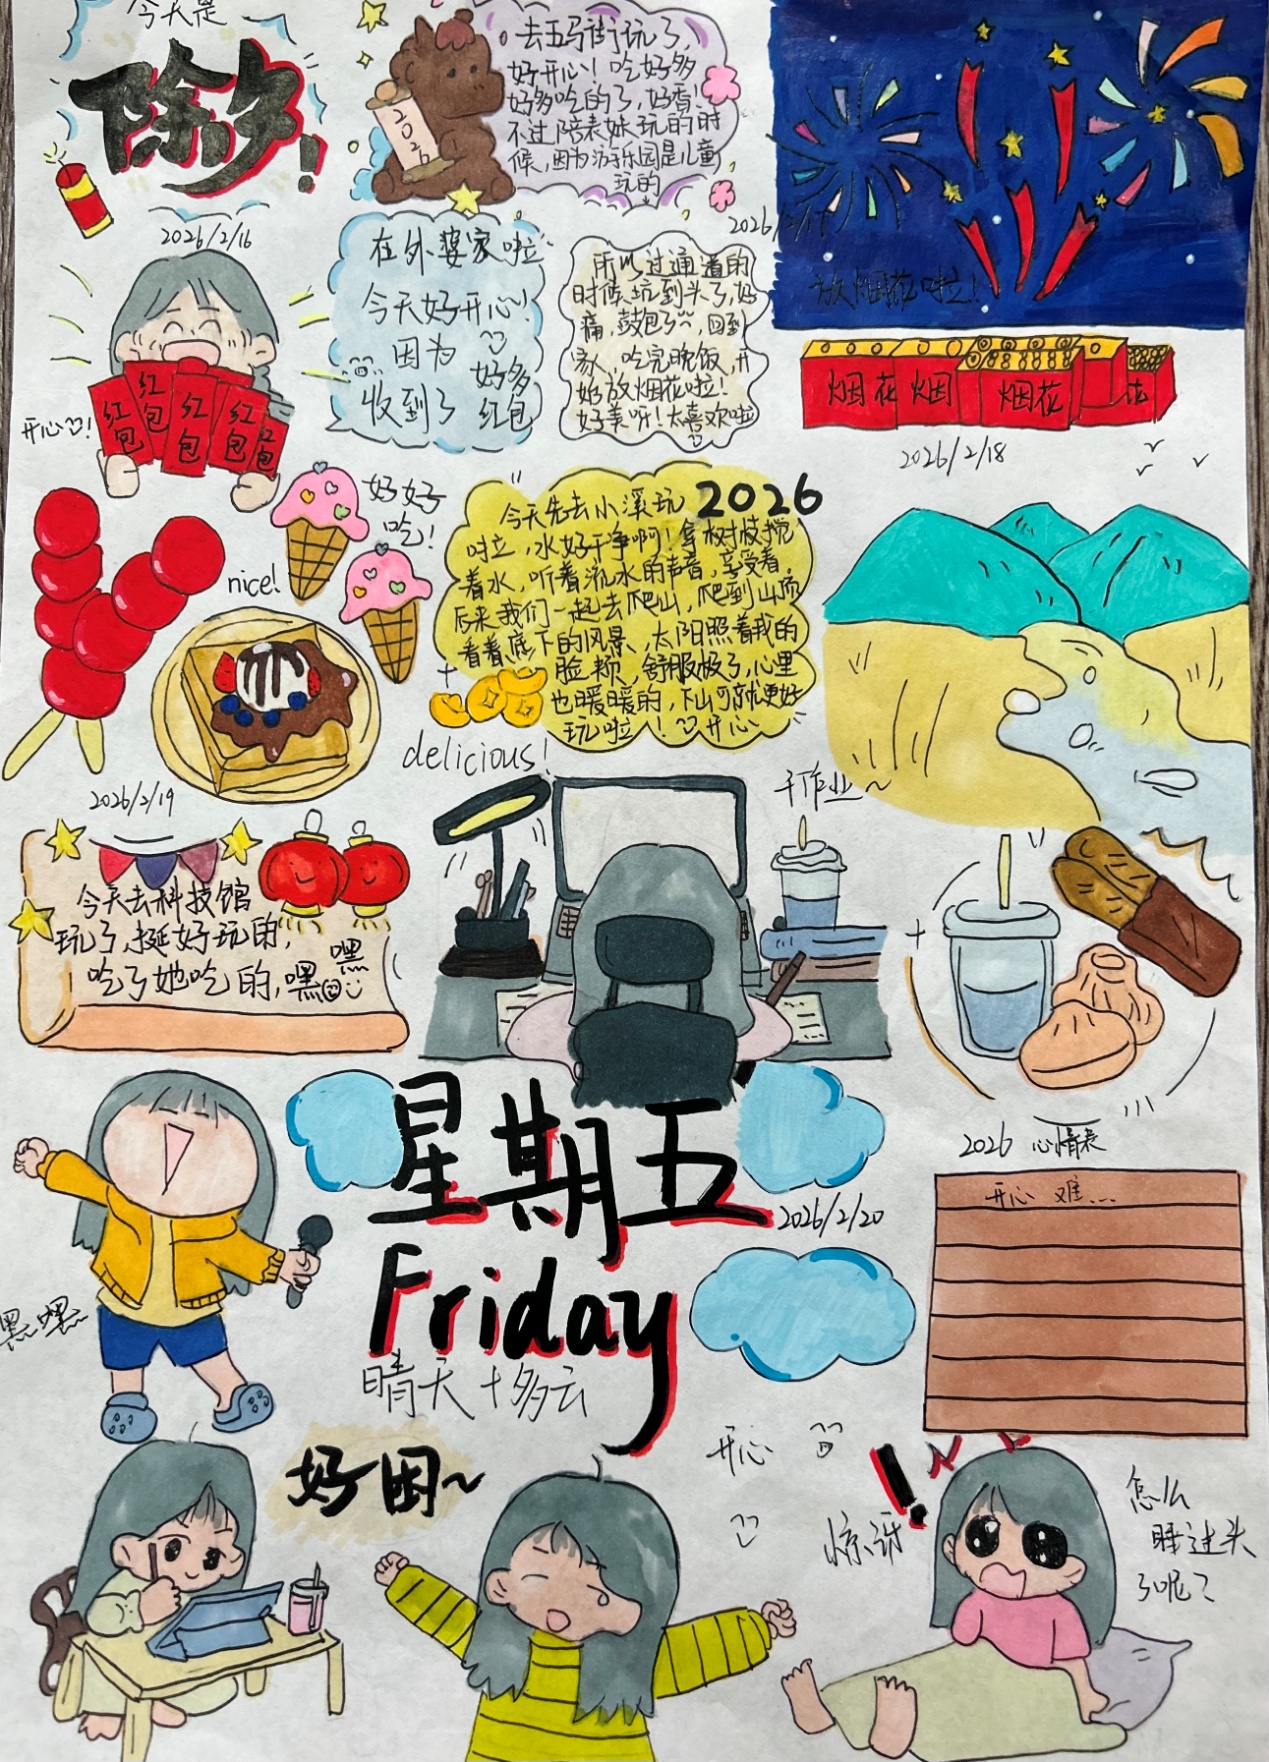 今天是
除夕!
2026/2/16
2026
去五马街玩了,
好开心! 吃好多
好多吃的了,好香!
不过陪表妹玩的时
候,因为游乐园是儿童
玩的
在外婆家啦
今天好开心!
因为
收到了好多
红包
开心!
红包
红包
红包
红包
红包
所以过通道的
时候坑到头了,好
痛,鼓包了,回到
家,吃完晚饭,开
始放烟花啦!
好美呀!太喜欢啦
放烟花啦!
烟花
烟
烟花
花
2026/2/18
好好
吃!
nice!
delicious!
2026/2/19
2026
今天先去小溪玩
啦,水好干净啊!拿树枝搅
着水,听着流水的声音,享受着。
后来我们一起去爬山,爬到山顶
看着底下的风景,太阳照着我的
脸颊,舒服极了,心里
也暖暖的,下山可就更好
玩啦!开心
干作业~
今天去科技馆
玩了,挺好玩的,
吃了她吃的,嘿嘿
星期五
2026/2/20
Friday
晴天+多云
2026 心情表
开心 难...
嘿嘿
好困~
开心
惊讶
!
怎么
睡过头
了呢?